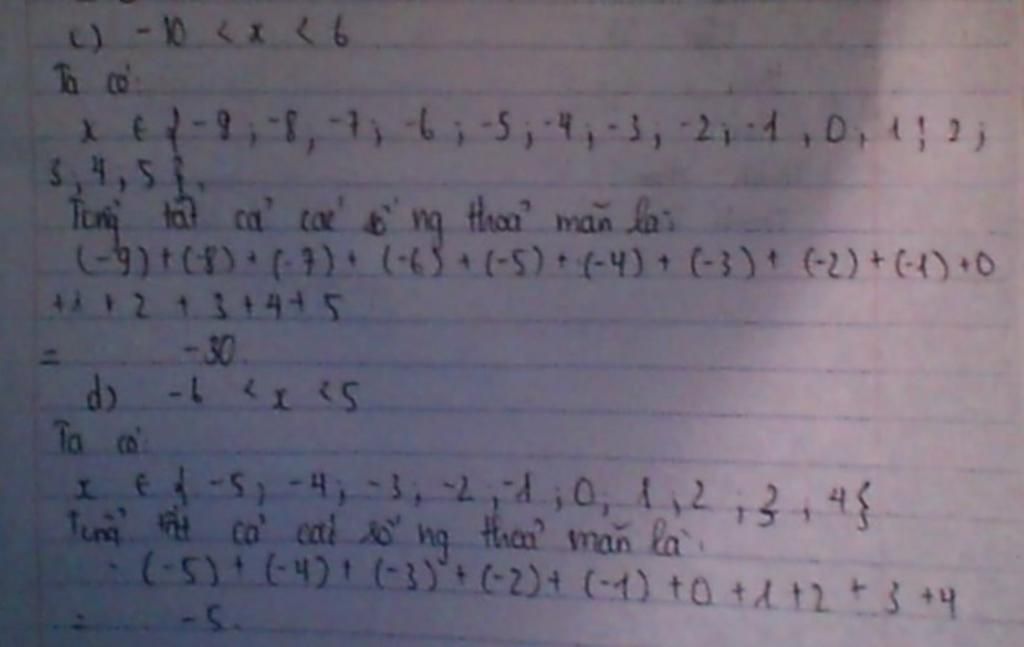 c) -10 < x < 6
Ta có:
x ∈ { -9 ; -8, -7; -6 ; -5; -4 ; -3, -2; -1 , 0, 1 ; 2 ;
3, 4, 5 }.
Tổng tất cả các số ng thoả mãn là:
(-9) + (-8) + (-7) + (-6) + (-5) + (-4) + (-3) + (-2) + (-1) + 0
+ 1 + 2 + 3 + 4 + 5
= -30.
d) -6 < x < 5
Ta có:
x ∈ { -5; -4; -3, -2, -1 ; 0, 1, 2 ; 3, 4 }
Tổng tất cả các số ng thoả mãn là:
(-5) + (-4) + (-3) + (-2) + (-1) + 0 + 1 + 2 + 3 + 4
= -5.